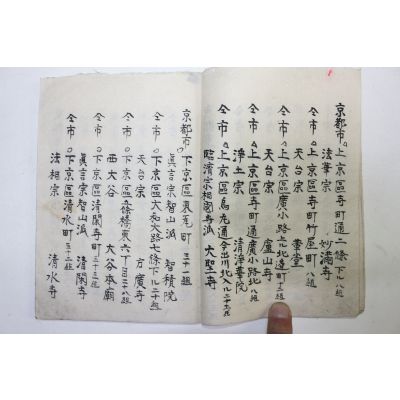 京都市。上京區寺町通二條下ル八組
法華宗 妙滿寺
仝市。上京區寺町竹屋町 八組
天台宗 革堂
仝市。上京區廣小路上ル北邊町 十三組
天台宗 廬山寺
仝市。上京區寺町通廣小路北 八組
淨土宗 清淨華院
仝市。上京區烏丸通今出川北入
臨濟宗相國寺派 大聖寺
京都市。下京區東瓦町 三十一組
眞言宗智山派 智積院
仝市。下京區大和大路七條下ル三十組
天台宗 方廣寺
仝市。下京區五條橋東六丁目 二十八組
西大谷 大谷本廟
仝市。下京區清閑寺町 三十三組
眞言宗智山派 清閑寺
仝市。下京區清水町 三十三組
法相宗 清水寺